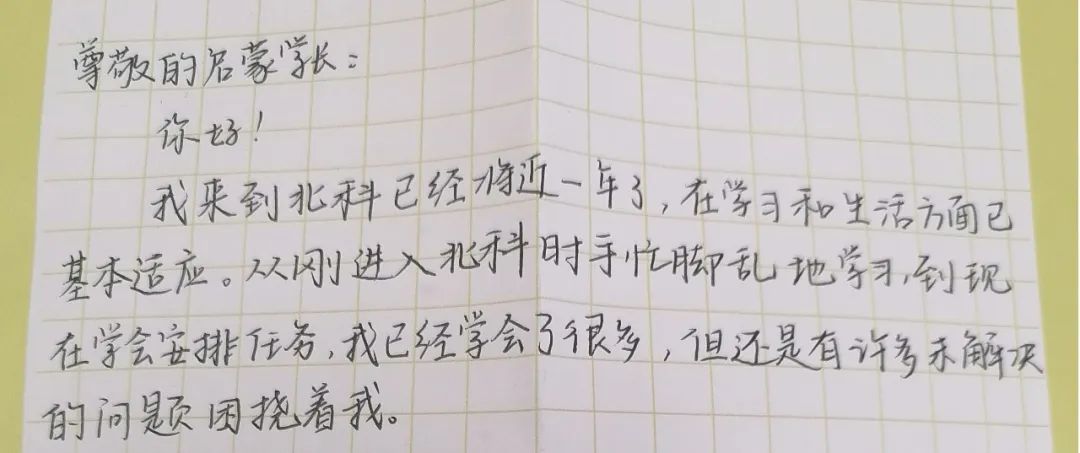 尊敬的启蒙学长：
你好！
我来到北科已经将近一年了，在学习和生活方面已
基本适应。从刚进入北科时手忙脚乱地学习，到现
在学会安排任务，我已经学会了很多，但还是有许多未解决
的问题困挠着我。